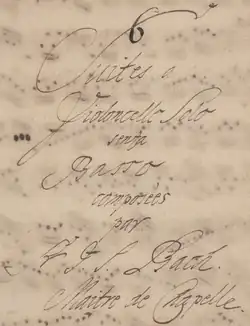 6
Suites a
Violoncello Solo
senza
Basso
composées
par
J. S. Bach.
Maitre de Chapelle